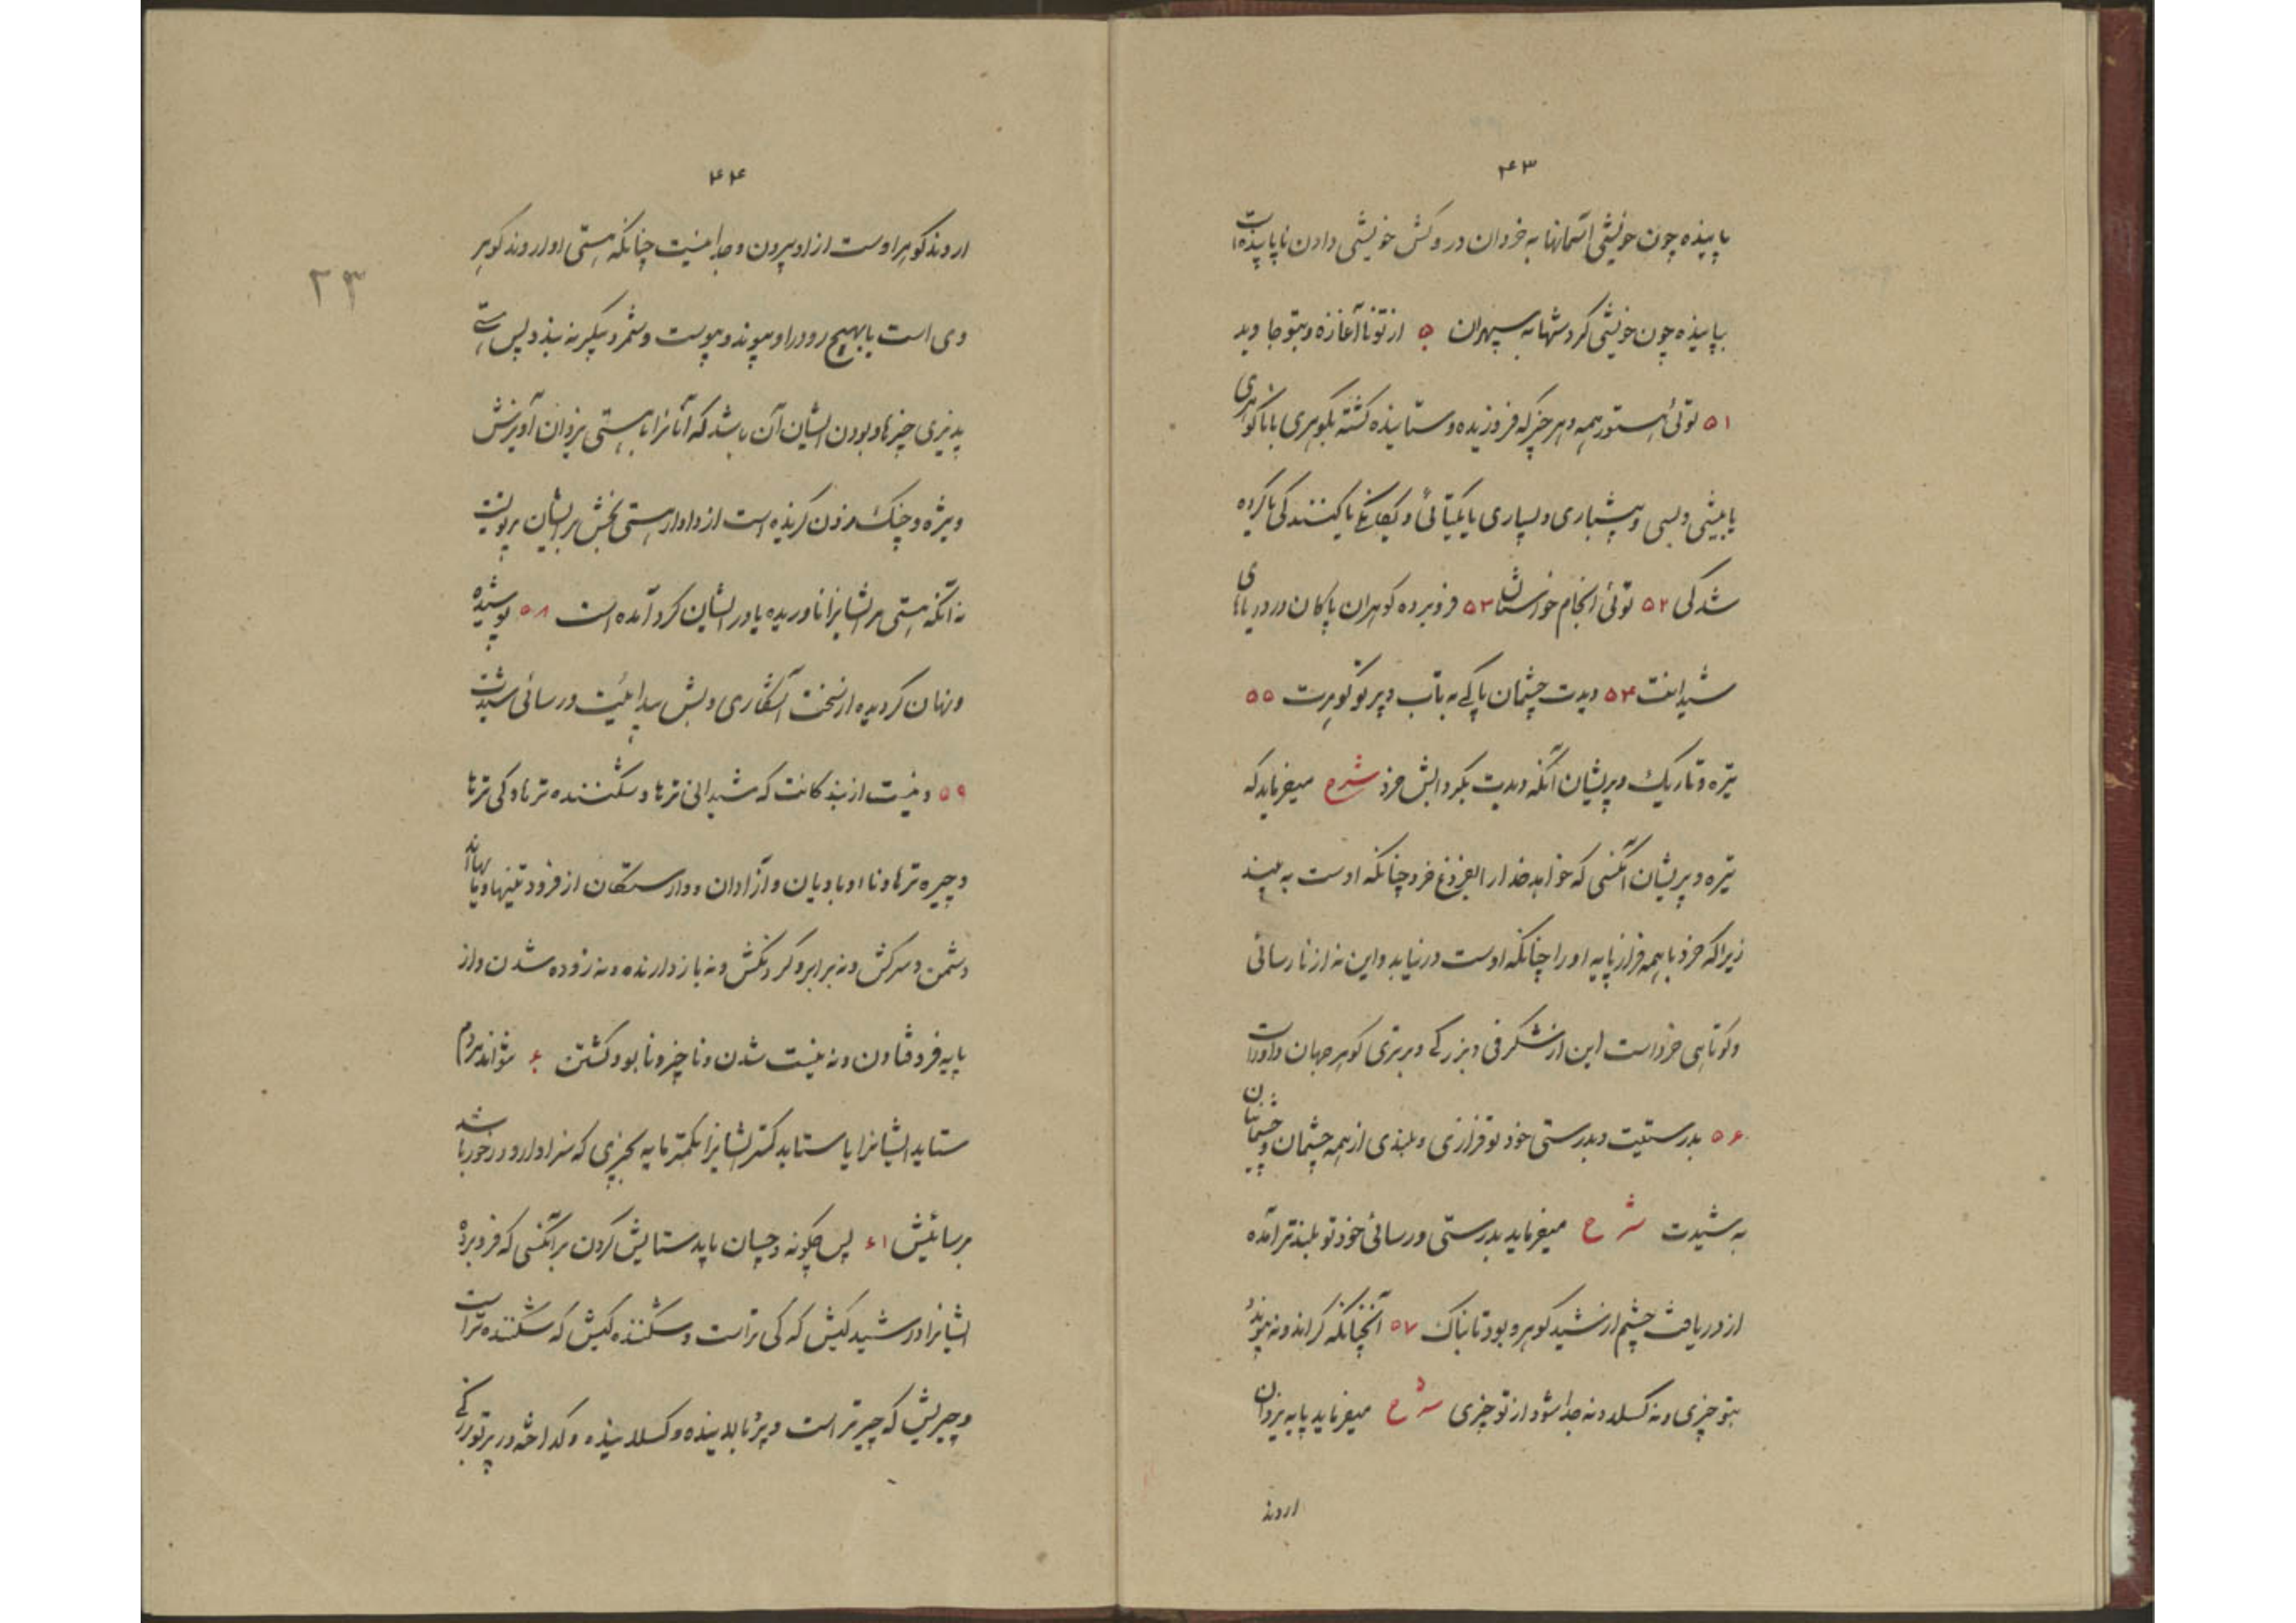 ۴۳
پاینده چون خویشی آسمانها به خردان در وکش خویشی دادن نا پاینده است
بپاینده چون خویشی کردشها به سپهران ۵۰ از تو نا آغازه و بتو جاوید
۵۱ توئی استور همه و هر چیز که فروزیده و ستاینده کشته بکوهری یا ناکوهری
یا بیشی و بسی و بیشماری و بسیاری یا یکتائی و یکانکی یا کنندکی یا کرده
شدکی ۵۲ توئی انجام خواستان ۵۳ فرو برده کوهران پاکان در دریاهای
شیدانت ۵۴ دیدت چشمان پاکی به تاب و پرتو کوهرت ۵۵
تیره و تاریک و پریشان آنکه دیدت بکردابش خرد شرح میفرماید که
تیره و پریشان آنکسی که خواهد خدا را بفروغ خرد چنانکه اوست به بیند
زیرا که خرد با همه فراز پایه او را چنانکه اوست در نیابد و این نه از نارسائی
و کوتاهی خرد است این از شکرفی و بزرکی و برتری کوهر جهان داور است
۵۶ بدرستیت و بدرستی خود تو فرازی و بلندی از همه چشمان و چشمان
به شیدت شرح میفرماید بدرستی و رسائی خود تو بلندتر آمده
از دریافت چشم از شید کوهر و بود تابناک ۵۷ آنچنانکه کراند و نه پیوندد
بتو چیزی و نه کسلد و نه جدا شود از تو چیزی شرح میفرماید پایه یزدان
اروند
۴۴
۲۳
اروند کوهر اوست از او بیرون و جدا نیست چنانکه هستی او اروند کوهر
وی است یا بهیچ رو در او پیوند و پیوست و شمر و پیکر نه بندد پس هستی
پذیری چیزها و بودن ایشان آن باشد که آنانرا با هستی یزدان آویزش
ویژه و چنک در زدن کزیده است از دادار هستی بخش بر ایشان پرتویست
نه آنکه هستی مر ایشانرا ناوریده یا در ایشان کرد آمده است ۵۸ پوشیده
و نهان کردیده از سخت آشکاری و بیش پیدائیت و رسائی شیدت
۵۹ و نیست از بندکانت که شیدانی ترها و شکننده ترها و کی ترها
و چیره ترها و نا اوبادیان و آزادان و وارستکان از فرودینیها و پایها اند
دشمن و سرکش و نه برابر و کردنکش و نه بازدارنده و نه زوده شدن و از
پایه فرو فتادن و نه نیست شدن و ناچیز و نابود کشتن ۶۰ نتواند مردم
ستاید ایشانرا یا ستاید کمتر ایشانرا بکمتر مایه بچیزی که سزاوار و در خور باشد
برسائیش ۶۱ پس چکونه و چسان باید ستایش کردن بر آنکسی که فرو برده
ایشانرا در شید کیش که کی تر است و شکننده کیش که شکننده تر است
و چیریش که چیرتر است و پژ نا بلاینده و کسلاینده و کداخته در پرتو بزرکی